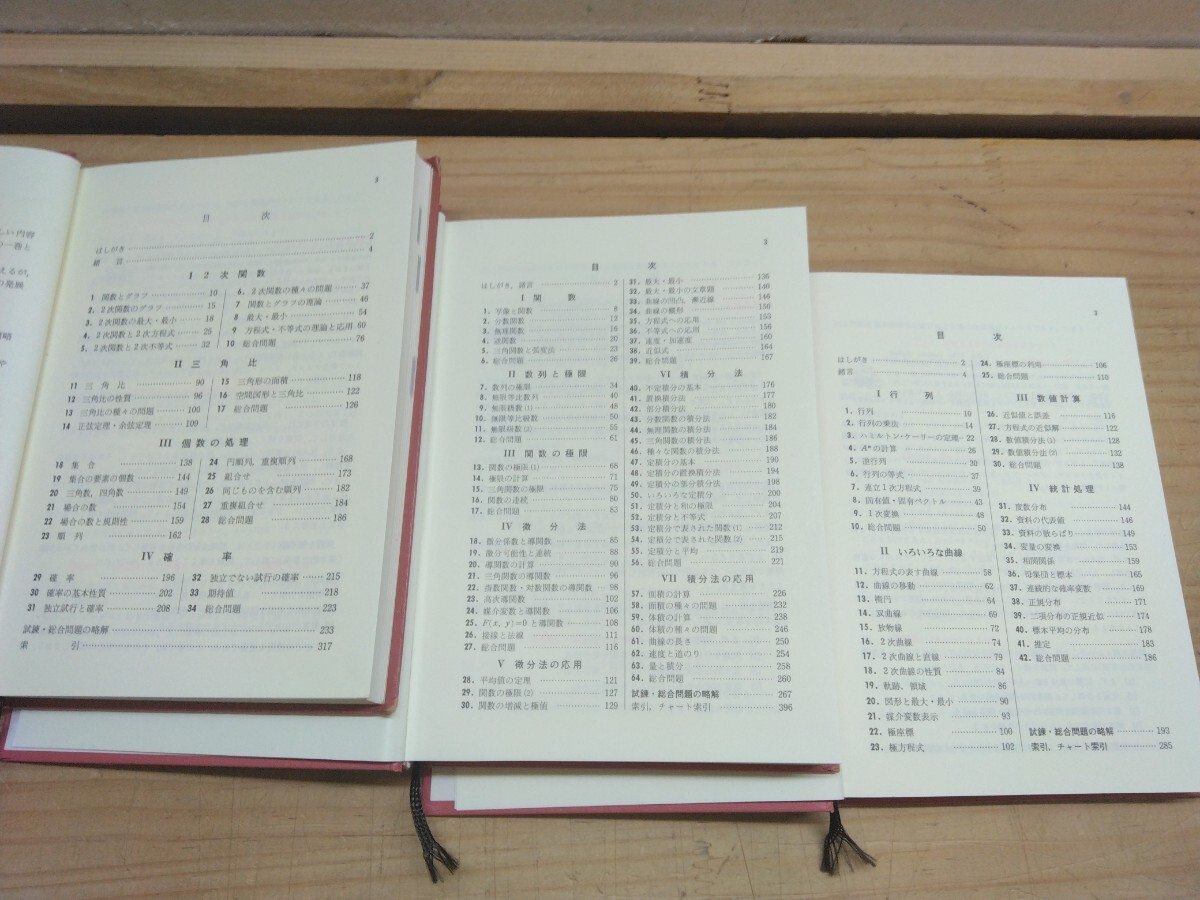 しい内容
の一巻と
えるが,
の発展
3
目 次
はしがき 2
緒言 4
I 2次関数
1 関数とグラフ 10
2. 2次関数のグラフ 15
3. 2次関数の最大・最小 18
4. 2次関数と2次方程式 25
5. 2次関数と2次不等式 32
6. 2次関数の種々の問題 37
7 関数とグラフの理論 46
8 最大・最小 54
9 方程式・不等式の理論と応用 60
10 総合問題 76
II 三角比
11 三角比 90
12 三角比の性質 96
13 三角比の種々の問題 100
14 正弦定理・余弦定理 109
15 三角形の面積 118
16 空間図形と三角比 122
17 総合問題 126
III 個数の処理
18 集合 138
19 集合の要素の個数 144
20 三角数, 四角数 149
21 場合の数 154
22 場合の数と規則性 159
23 順列 162
24 円順列, 重複順列 168
25 組合せ 173
26 同じものを含む順列 182
27 重複組合せ 184
28 総合問題 186
IV 確率
29 確率 196
30 確率の基本性質 202
31 独立試行と確率 208
32 独立でない試行の確率 215
33 期待値 218
34 総合問題 223
試練・総合問題の略解 233
索引 317
目 次
はしがき, 緒言 2
I 関数
1. 写像と関数 8
2. 分数関数 12
3. 無理関数 16
4. 逆関数 20
5. 三角関数と弧度法 23
6. 総合問題 26
II 数列と極限
7. 数列の極限 34
8. 無限等比数列 40
9. 無限級数(1) 48
10. 無限等比級数 50
11. 無限級数(2) 55
12. 総合問題 61
III 関数の極限
13. 関数の極限(1) 68
14. 極限の計算 71
15. 三角関数の極限 75
16. 関数の連続 80
17. 総合問題 83
IV 微分法
18. 微分係数と導関数 85
19. 微分可能性と連続 88
20. 導関数の計算 90
21. 三角関数の導関数 96
22. 指数関数・対数関数の導関数 98
23. 高次導関数 102
24. 媒介変数と導関数 106
25. F(x, y)=0 と導関数 108
26. 接線と法線 111
27. 総合問題 116
V 微分法の応用
28. 平均値の定理 121
29. 関数の極限(2) 127
30. 関数の増減と極値 129
31. 最大・最小 136
32. 最大・最小の文章題 140
33. 曲線の凹凸, 漸近線 146
34. 曲線の概形 150
35. 方程式への応用 153
36. 不等式への応用 156
37. 速度・加速度 160
38. 近似式 164
39. 総合問題 167
VI 積分法
40. 不定積分の基本 176
41. 置換積分法 177
42. 部分積分法 180
43. 分数関数の積分法 182
44. 無理関数の積分法 184
45. 三角関数の積分法 186
46. 種々な関数の積分法 188
47. 定積分の基本 190
48. 定積分の置換積分法 194
49. 定積分の部分積分法 197
50. いろいろな定積分 200
51. 定積分と和の極限 204
52. 定積分と不等式 207
53. 定積分で表された関数(1) 212
54. 定積分で表された関数(2) 215
55. 定積分と平均 219
56. 総合問題 221
VII 積分法の応用
57. 面積の計算 226
58. 面積の種々の問題 232
59. 体積の計算 238
60. 体積の種々の問題 246
61. 曲線の長さ 250
62. 速度と道のり 254
63. 量と積分 258
64. 総合問題 260
試練・総合問題の略解 267
索引, チャート索引 396
3
目 次
はしがき 2
緒言 4
I 行列
1. 行列 10
2. 行列の乗法 14
3. ハミルトン・ケーリーの定理 22
4. Aⁿの計算 26
5. 逆行列 30
6. 行列の等式 37
7. 連立1次方程式 39
8. 固有値・固有ベクトル 43
9. 1次変換 48
10. 総合問題 50
II いろいろな曲線
11. 方程式の表す曲線 58
12. 曲線の移動 62
13. 楕円 64
14. 双曲線 69
15. 放物線 72
16. 2次曲線 74
17. 2次曲線と直線 79
18. 2次曲線の性質 84
19. 軌跡, 領域 86
20. 図形と最大・最小 90
21. 媒介変数表示 93
22. 極座標 100
23. 極方程式 102
24. 極座標の利用 106
25. 総合問題 110
III 数値計算
26. 近似値と誤差 116
27. 方程式の近似解 122
28. 数値積分法(1) 128
29. 数値積分法(2) 132
30. 総合問題 138
IV 統計処理
31. 度数分布 144
32. 資料の代表値 146
33. 資料の散らばり 149
34. 変量の変換 153
35. 相関関係 159
36. 母集団と標本 165
37. 連続的な確率変数 169
38. 正規分布 171
39. 二項分布の正規近似 174
40. 標本平均の分布 178
41. 推定 183
42. 総合問題 186
試練・総合問題の略解 193
索引, チャート索引 285